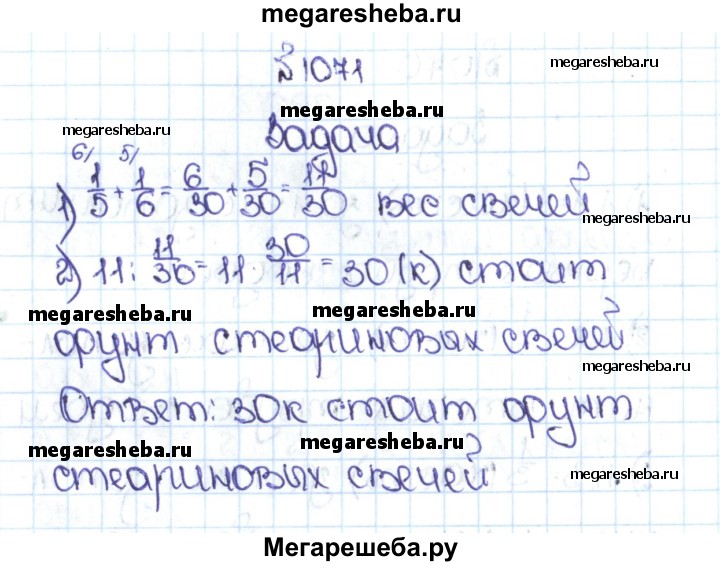 megaresheba.ru
№ 1071
megaresheba.ru
Задача
6/ 5/
1) 1/5 + 1/6 = 6/30 + 5/30 = 11/30 вес свечей
megaresheba.ru
2) 11 : 11/30 = 11 · 30/11 = 30 (к) стоит
megaresheba.ru
megaresheba.ru
фунт стеариновых свечей
megaresheba.ru
Ответ: 30к стоит фунт
megaresheba.ru
megaresheba.ru
стеариновых свечей
megaresheba.ru
Мегарешеба.ру